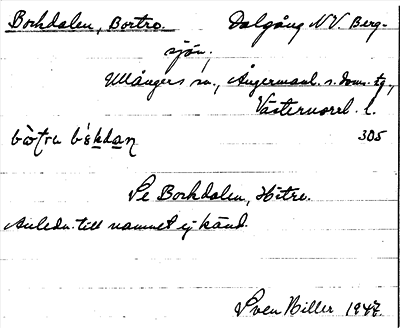 Bockdalen, Bortre. Dalgång N.V. Berg-
sjön,
Ullångers sn., Ångermanl. s. doms. tg.,
Västernorrl. l.
305
Se Bockdalen, Hitre.
Anledn. till namnet ej känd.
Sven Biller 1947.